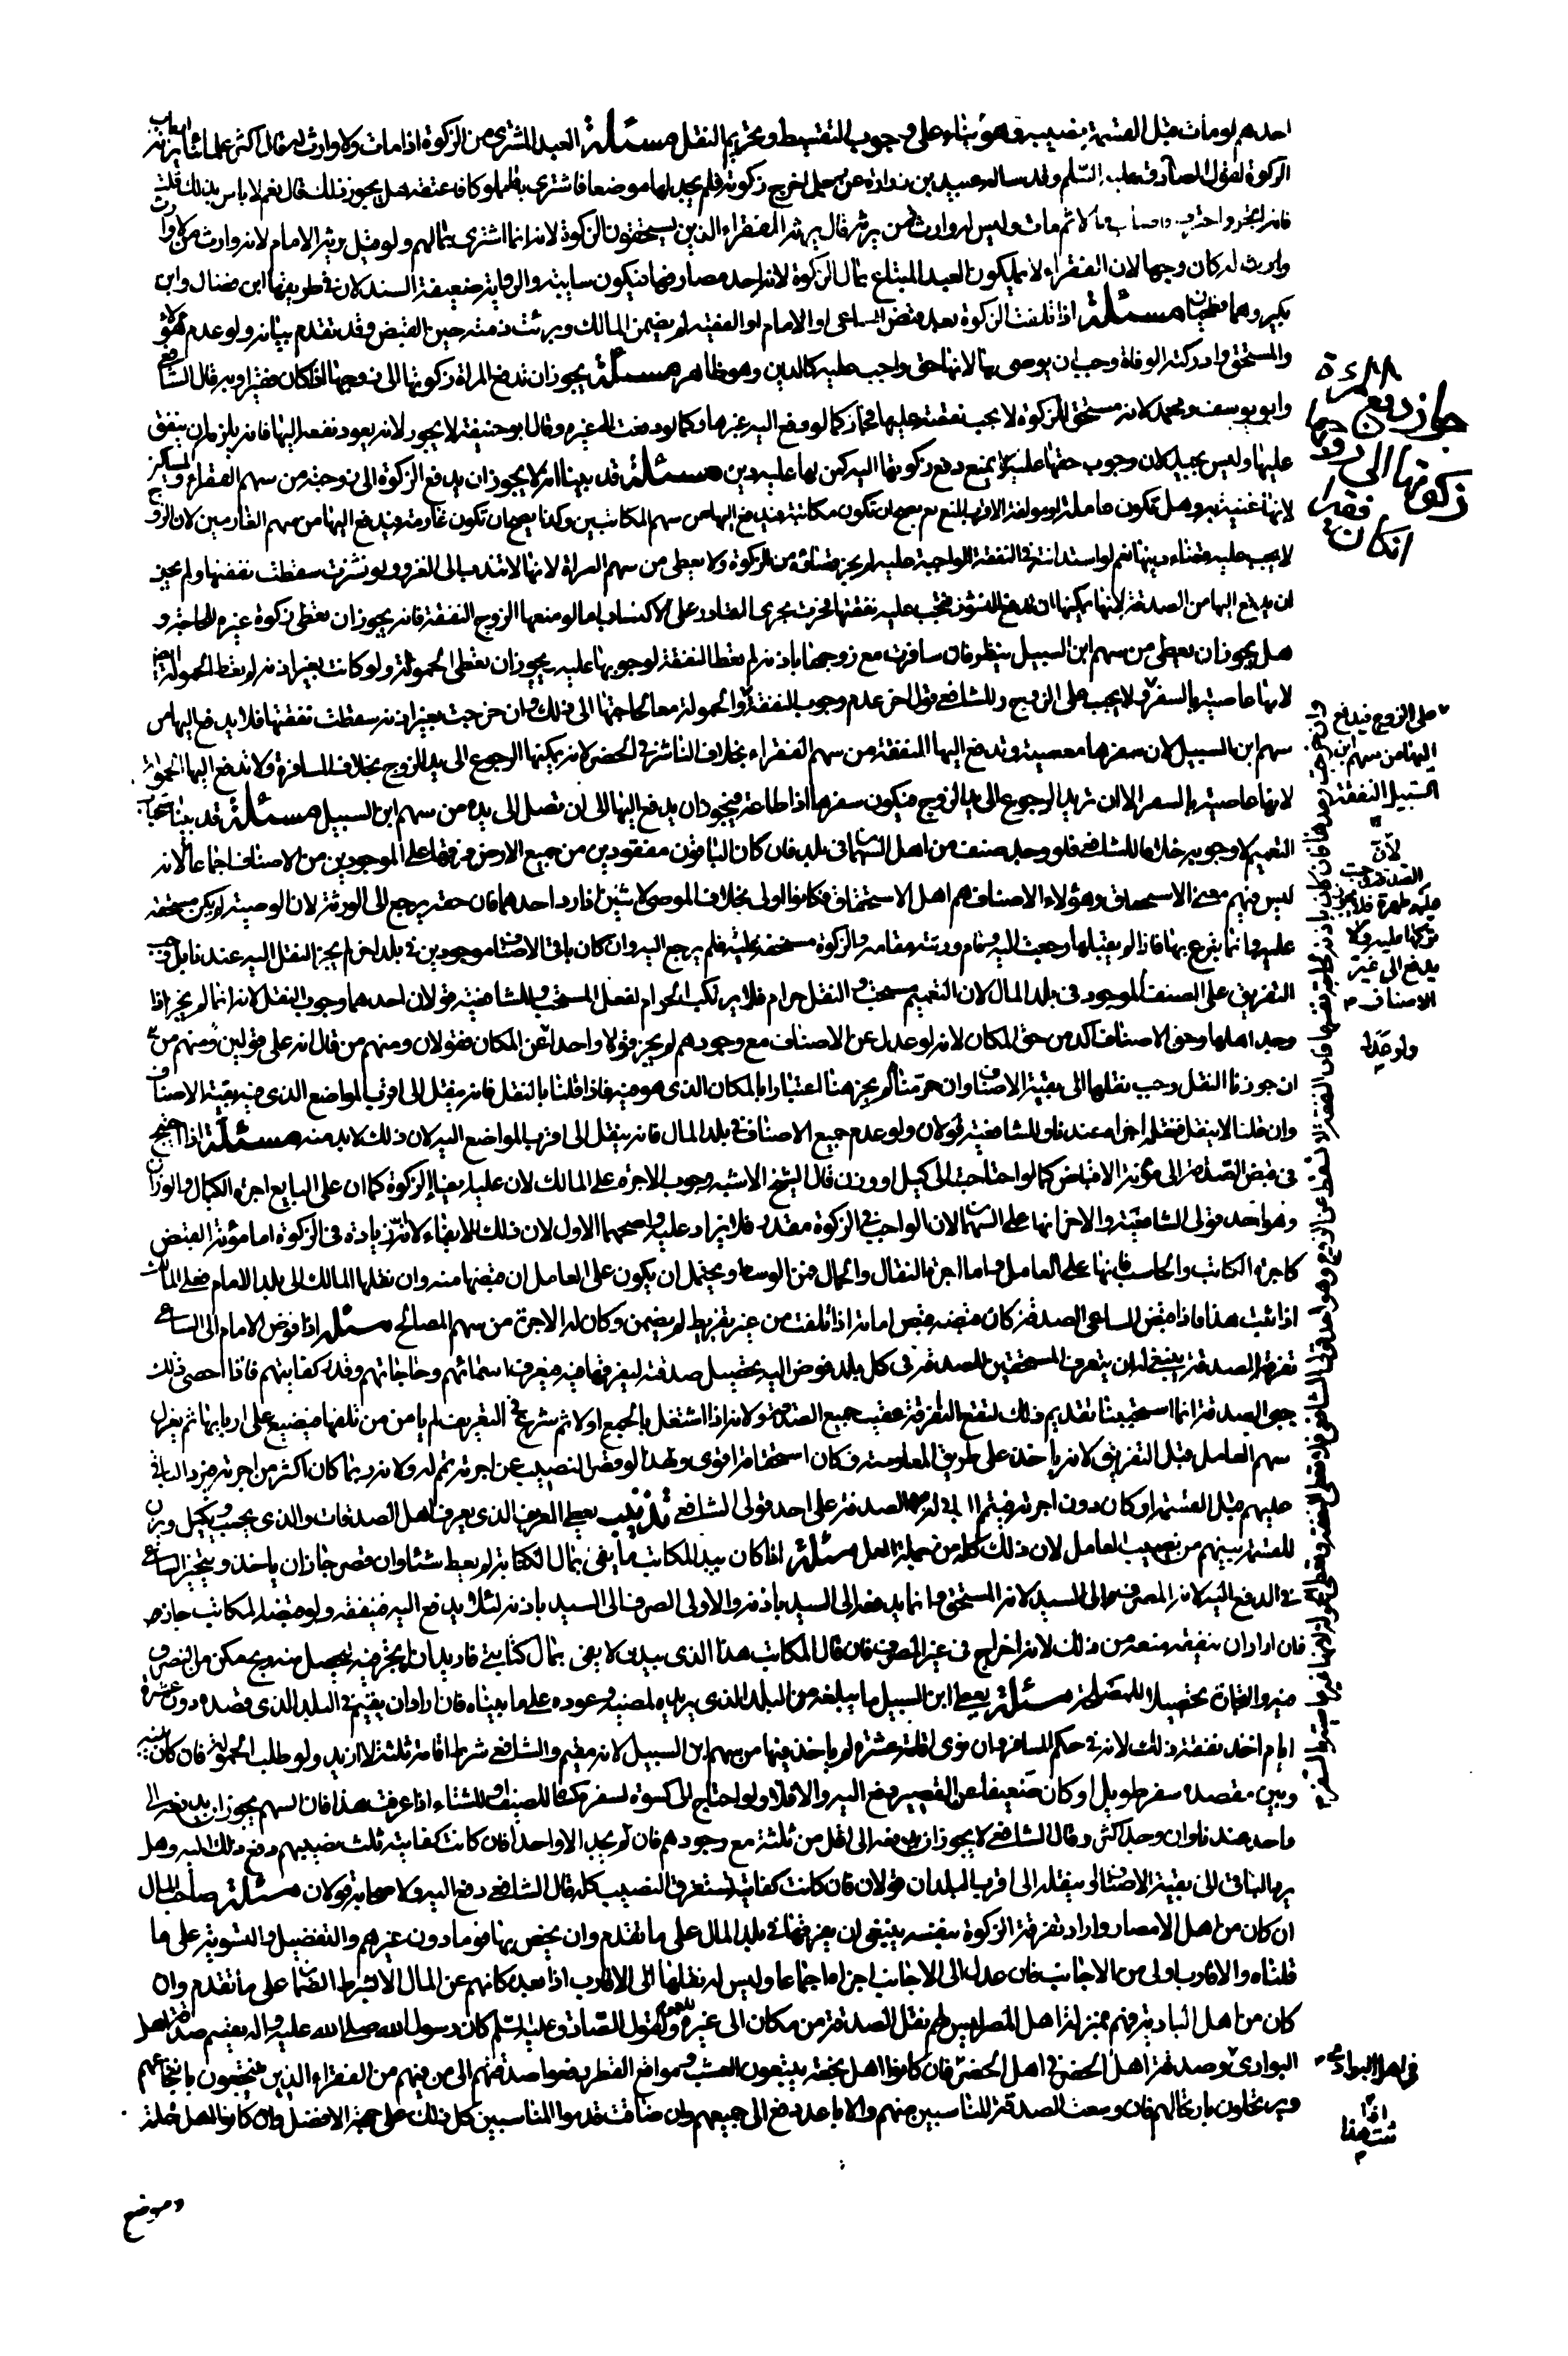 احدهم لومات قبل القسمة بنصيبه وهو بناء على وجوب التقسيط وتحريم النقل مسئلة العبد المشترى من الزكوة اذا مات ولا وارث له قال اكثر علمائنا يرثه ارباب
الزكوة لقول الصادق عليه السلم وقد ساله عبيد بن زرارة عن رجل اخرج زكوته فلم يجد لها موضعا فاشترى به مملوكا فاعتقه هل يجوز ذلك قال نعم لا باس بذلك قلت
فانه اتجر واحترف واصاب مالا ثم مات وليس له وارث فمن يرثه قال يرثه الفقراء الذين يستحقون الزكوة لانه انما اشترى بمالهم ولو قيل يرثه الامام لانه وارث من لا
وارث له كان وجها لان الفقراء لا يملكون العبد المبتاع بمال الزكوة لانه احد مصارفها فيكون سايبة والرواية ضعيفة السند لان في طريقها ابن فضال وابن
بكير وهما فطحيان مسئلة اذا تلفت الزكوة بعد قبض الساعى او الامام او الفقيه لم يضمن المالك وبرئت ذمته حين القبض وقد تقدم بيانه ولو عدم هؤلاء
والمستحق وادركته الوفاة وجب ان يوصى بها لانها حق واجب عليه كالدين وهو ظاهر مسئلة يجوز ان تدفع المراة زكوتها الى زوجها اذا كان فقيرا وبه قال الشافعي
وابو يوسف ومحمد لانه مستحق للزكوة لا يجب نفقته عليها فجاز كما لو دفع اليه غيرها وكما لو دفعت الى غيره وقال ابو حنيفة لا يجوز لانه يعود نفعه اليها فانه يلزم ان ينفق
عليها وليس بجيد لان وجوب حقها عليه لا يمنع دفع زكوتها اليه كمن لها عليه دين مسئلة قد بينا انه لا يجوز ان يدفع الزكوة الى زوجته من سهم الفقراء والمساكين
لانها غنية به وهل تكون عاملة او مولفة الاقرب المنع نعم يصح ان تكون مكاتبة فيدفع اليها من سهم المكاتبين وكذا يصح ان تكون غارمة فيدفع اليها من سهم الغارمين لان الزوج
لا يجب عليه قضاء دينها نعم لو استدانته في النفقة الواجبة عليه لم يجز قضاؤه من الزكوة ولا يعطى من سهم الغزاة لانها لا تندب الى الغزو ولو نشزت سقطت نفقتها ولم يجز
ان يدفع اليها من الصدقة لانها يمكنها ان تدفع النشوز فتجب عليه نفقتها فجرت مجرى القادر على الاكتساب اما لو منعها الزوج النفقة فانه يجوز ان تعطى زكوة غيره للحاجة و
هل يجوز ان يعطى من سهم ابن السبيل ينظر فان سافرت مع زوجها باذنه لم تعط النفقة لوجوبها عليه ويجوز ان تعطى الحمولة ولو كانت بغير اذنه لم تعط الحمولة ايضا
لانها عاصية بالسفر ولا يجب على الزوج وللشافعي قول اخر عدم وجوب النفقة والحمولة معا لحاجتها الى ذلك وان خرجت بغير اذنه سقطت نفقتها فلا يدفع اليها من
سهم ابن السبيل لان سفرها معصية وتدفع اليها النفقة من سهم الفقراء بخلاف الناشز في الحضر لانه يمكنها الرجوع الى يد الزوج بخلاف المسافرة ولا تدفع اليها الحمولة
لانها عاصية بالسفر الا ان تريد الرجوع الى يد الزوج فيكون سفرها اذا طاعة فيجوز ان يدفع اليها الى ان تصل الى يده من سهم ابن السبيل مسئلة قد بينا استحباب
التعميم لا وجوبه خلافا للشافعي فلو وجد صنف من اهل السهمان في بلد فان كان الباقون مفقودين من جميع الارض فرقها على الموجودين من الاصناف اجماعا لانه
ليس فيهم معنى الاستحقاق وهؤلاء الاصناف هم اهل الاستحقاق فكانوا اولى بخلاف الموصى لاثنين اذا رد احدهما فان حقه يرجع الى الورثة لان الوصية لم يكن مستحقة
عليه وانما تبرع بها فاذا لم يقبلها رجعت اليه وقام ورثته مقامه والزكوة مستحقة عليه فلم يرجع اليه وان كان باقى الاصناف موجودين في بلد اخر لم يجز النقل اليه عندنا بل وجب
التفريق على الصنف الموجود في بلد المال لان التعميم مستحب والنقل حرام فلا يرتكب الحرام لفعل المستحب وللشافعية قولان احدهما وجوب النقل لانه انما لم يجز اذا
وجد اهلها وحق الاصناف اكد من حق المكان لانه لو عدل عن الاصناف مع وجودهم لم يجز قولا واحدا عن المكان فقولان ومنهم من قال انه على قولين ومنهم من
ان جوزنا النقل وجب نقلها الى بقية الاصناف وان حرمناه لم يجز هنا اعتبارا بالمكان الذى هو فيه فاذا قلنا بالنقل فانه ينقل الى اقرب المواضع الذى فيه بقية الاصناف
وان قلنا لا ينقل فنقله اجزاه عندنا وللشافعية قولان ولو عدم جميع الاصناف في بلد المال فانه ينقل الى اقرب المواضع اليه لان ذلك لا بد منه مسئلة اذا احتيج
في قبض الصدقة الى مؤنة الاقباض كما لو احتاجت الى كيل او وزن قال الشيخ الاشبه وجوب الاجرة على المالك لان عليه ايفاء الزكوة كما ان على البايع اجرة الكيال والوزان
وهو احد قولى الشافعية والاخر انها على السهمان لان الواجب في الزكوة مقدر فلا يزاد عليه واصحهما الاول لان ذلك للايفاء لا انه زيادة في الزكوة اما مؤنة القبض
كاجرة الكاتب والحاسب فانها على العامل واما اجرة النقال والحمال فمن الوسط ويحتمل ان يكون على العامل ان قبضها منه وان نقلها المالك الى بلد الامام فعلى المالك
اذا ثبت هذا فاذا قبض الساعى الصدقة كان قبضه قبض امانة اذا تلفت من غير تفريط لم يضمن وكان له الاجرة من سهم المصالح مسئلة اذا فوض الامام الى الساعى
تفرقة الصدقة ينبغى له ان يتعرف المستحقين للصدقة في كل بلد فوض اليه تحصيل صدقته ليفرقها فيه فيعرف اسمائهم وحاجاتهم وقدر كفايتهم فاذا احصى ذلك
جبى الصدقة انما استحببنا تقديم ذلك لتقع التفرقة عقيب جميع الصدقة ولانه اذا اشتغل بالجمع اولا ثم شرع في التعريف لم يامن من تلفها فيضيع على اربابها ثم يعزل
سهم العامل قبل التفريق لانه ياخذ على طريق المعاوضة فكان استحقاقه اقوى ولهذا لو قصر النصيب عن اجرته تمم له ولانه ربما كان اكثر من اجرته فيرد الباقى
عليهم قبل القسمة او كان دون اجرته فيتمم الصدقة على احد قولى الشافعي تذنيب يعطى العريف الذى يعرف اهل الصدقات والذى يحسب ويكيل ويزن
للقسمة بينهم من نصيب العامل لان ذلك كله من جملة العمل مسئلة اذا كان بيد المكاتب ما يفى بمال الكتابة لم يعط شيئا وان قصر جاز ان ياخذ ويتخير الساعى
في الدفع اليه لانه المصرف والى السيد لانه المستحق وانما يدفعه الى السيد باذنه والاولى الصرف الى السيد باذنه لئلا يدفع اليه فينفقه ولو قبضه المكاتب جاز
فان اراد ان ينفقه منعه من ذلك لانه اخراج في غير المصرف فان قال المكاتب هذا الذى بيدى لا يفى بمال كتابتى فاريد ان اتجر فيه ليحصل منه ربح مكن من التصرف
فيه والتجارة تحصيلا للمصلحة مسئلة يعطى ابن السبيل ما يبلغه من البلد الذى يريده لمضيه وعوده على ما بيناه فان اراد ان يقيم في البلد الذى قصده دون عشرة
ايام اخذ نفقة ذلك لانه في حكم المسافر وان نوى اقامة عشرة لم ياخذ فيها من سهم ابن السبيل لانه مقيم والشافعي شرط اقامة ثلثة لا ازيد ولو طلب الحمولة فان كان بينه
وبين مقصده سفر طويل او كان ضعيفا عن القصير دفع اليه والا فلا ولو احتاج الى كسوة لسفره كسى للصيف والشتاء اذا عرفت هذا فان السهم يجوز ان يدفعه الى
واحد عندنا وان وجد اكثر وقال الشافعي لا يجوز ان يدفعه الى اقل من ثلثة مع وجودهم فان لم يجد الا واحدا فان كانت كفايته ثلث نصيبهم دفع ذلك اليه وهل
يرد الباقى الى بقية الاصناف او ينقله الى اقرب البلدان قولان فان كانت كفايته تستغرق النصيب كله قال الشافعي دفع اليه ولاصحابه قولان مسئلة صاحب المال
ان كان من اهل الامصار واراد تفرقة الزكوة بنفسه ينبغى ان يفرقها في بلد المال على ما تقدم وان يخص بها قوما دون غيرهم والتفضيل والتسوية على ما
قلناه والاقارب اولى من الاجانب فان عدل الى الاجانب اجزا اجماعا وليس له نقلها الى الاقارب اذا بعد مكانهم عن المال الا بشرط الضمان على ما تقدم وان
كان من اهل البادية فهم بمنزلة اهل المصر ليس لهم نقل الصدقة من مكان الى غيره ولقول الصادق عليه السلم كان رسول الله صلى الله عليه واله يقسم صدقة اهل
البوادى وصدقة اهل الحضر في اهل الحضر فان كانوا اهل نجعة يتتبعون العشب ومواقع القطر دفعوا صدقتهم الى من فيهم من الفقراء الذين ينتجعون بانتجاعهم
ويرتحلون بارتحالهم فان وسعت الصدقة للمناسبين منهم والاباعد دفع الى جميعهم وان ضاقت قدموا المناسبين كل ذلك على جهة الافضل وان كانوا اهل حلة
جواز دفع المرءة
زكوتها الى زوجها
ان كان فقيرا
على الزوج فيدفع
اليها من سهم ابن
السبيل النفقة
لان
الصدقة وجبت
عليه طهرة فلا يجوز
تركها عليه ولا
يدفع الى غير
الاصناف
ولو عدل
في اهل البوادى
اذا
ثبت هذا
وموضع